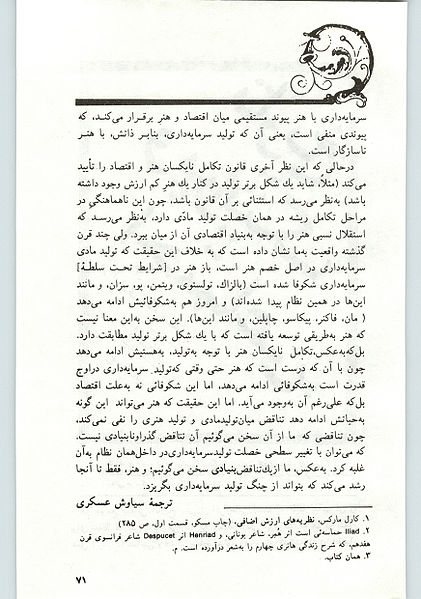 سرمایه‌داری با هنر پیوند مستقیمی میان اقتصاد و هنر برقرار می‌کند، که
پیوندی منفی است، یعنی آن که تولید سرمایه‌داری، بنابر ذاتش، با هنر
ناسازگار است.
درحالی که این نظر آخری قانون تکامل نایکسان هنر و اقتصاد را تأیید
می‌کند (مثلاً، شاید یك شکل برتر تولید در کنار یك هنر کم ارزش وجود داشته
باشد) به‌نظر می‌رسد که استثنائی بر آن قانون باشد، چون این ناهماهنگی در
مراحل تکامل ریشه در همان خصلت تولید مادّی دارد، به‌نظر می‌رسد که
استقلال نسبی هنر را با توجه به‌بنیاد اقتصادی آن از میان ببرد. ولی چند قرن
گذشته واقعیت به‌ما نشان داده است که به خلاف این حقیقت که تولید مادی
سرمایه‌داری در اصل خصم هنر است، باز هنر در [شرایط تحت سلطهٔ]
سرمایه‌داری شکوفا شده است (بالزاك، تولستوی، ویتمن، پو، سزان، و مانند
این‌ها در همین نظام پیدا شده‌اند) و امروز هم به‌شکوفائیش ادامه می‌دهد
( مان، فاکنر، پیکاسو، چاپلین، و مانند این‌ها). این سخن به‌این معنا نیست
که هنر به‌طریقی توسعه یافته است که با یك شکل برتر تولید مطابقت دارد.
بل‌که‌به‌عکس،تکامل نایکسان هنر با توجه به‌تولید، به‌هستیش ادامه می‌دهد
چون با آن که درست است که هنر حتی وقتی که‌تولید سرمایه‌داری دراوج
قدرت است به‌شکوفائی ادامه می‌دهد، اما این شکوفائی نه به‌علت اقتصاد
بل‌که علی‌رغم آن به‌وجود می‌آید. اما این حقیقت که هنر می‌تواند این گونه
به‌حیاتش ادامه دهد تناقض میان‌تولیدمادی و تولید هنری را نفی نمی‌کند،
چون تناقضی که ما از آن سخن می‌گوئیم آن تناقض گذراونابنیادی نیست.
که می‌توان با تغییر سطحی خصلت تولید سرمایه‌داری‌در داخل‌همان نظام به‌آن
غلبه کرد. به‌عکس، ما ازیك‌تناقض‌بنیادی سخن می‌گوئیم؛ و هنر، فقط تا آنجا
رشد می‌کند که بتواند از چنگ تولید سرمایه‌داری بگریزد.
ترجمهٔ سیاوش عسکری
۱. کارل مارکس، نظریه‌های ارزش اضافی، (چاپ مسکو، قسمت اول، ص ۲۸۵)
۲. Iliad حماسه‌ئی است اثر هُمر، شاعر یونانی، و Henriad اثر Despucet شاعر فرانسوی قرن
هفدهم، که شرح زندگی هانری چهارم را به‌شعر درآورده است. م.
۳. همان کتاب.
۷۱